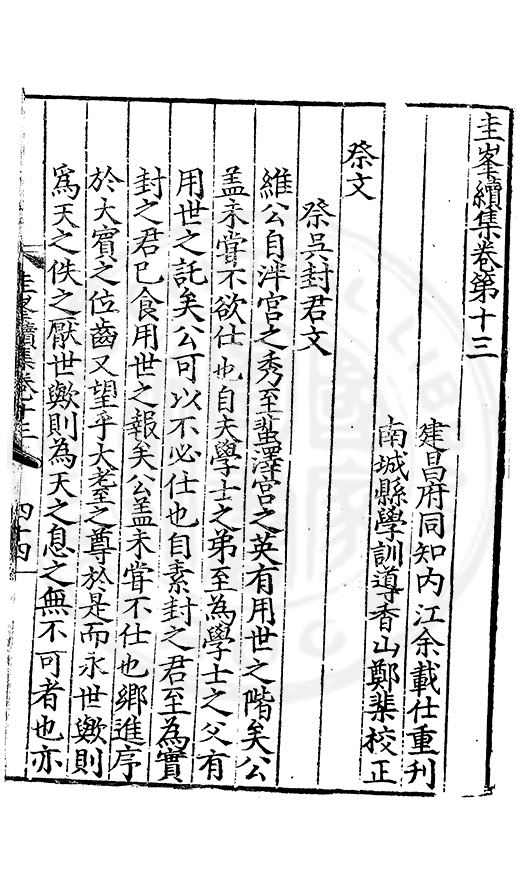 圭峯續集卷第十三
建昌府同知內江余載仕重刊
南城縣學訓導香山鄭棐校正
祭文
祭吳封君文
維公自泮宮之秀至蜚澤宮之英有用世之階矣公
盖未嘗不欲仕也自夫學士之弟至為學士之父有
用世之託矣公可以不必仕也自素封之君至為實
封之君已食用世之報矣公盖未嘗不仕也鄉進序
於大賓之位齒又望乎大耋之尊於是而永世歟則
為天之佚之厭世歟則為天之息之無不可者也亦
圭峯續集卷十三
四十四